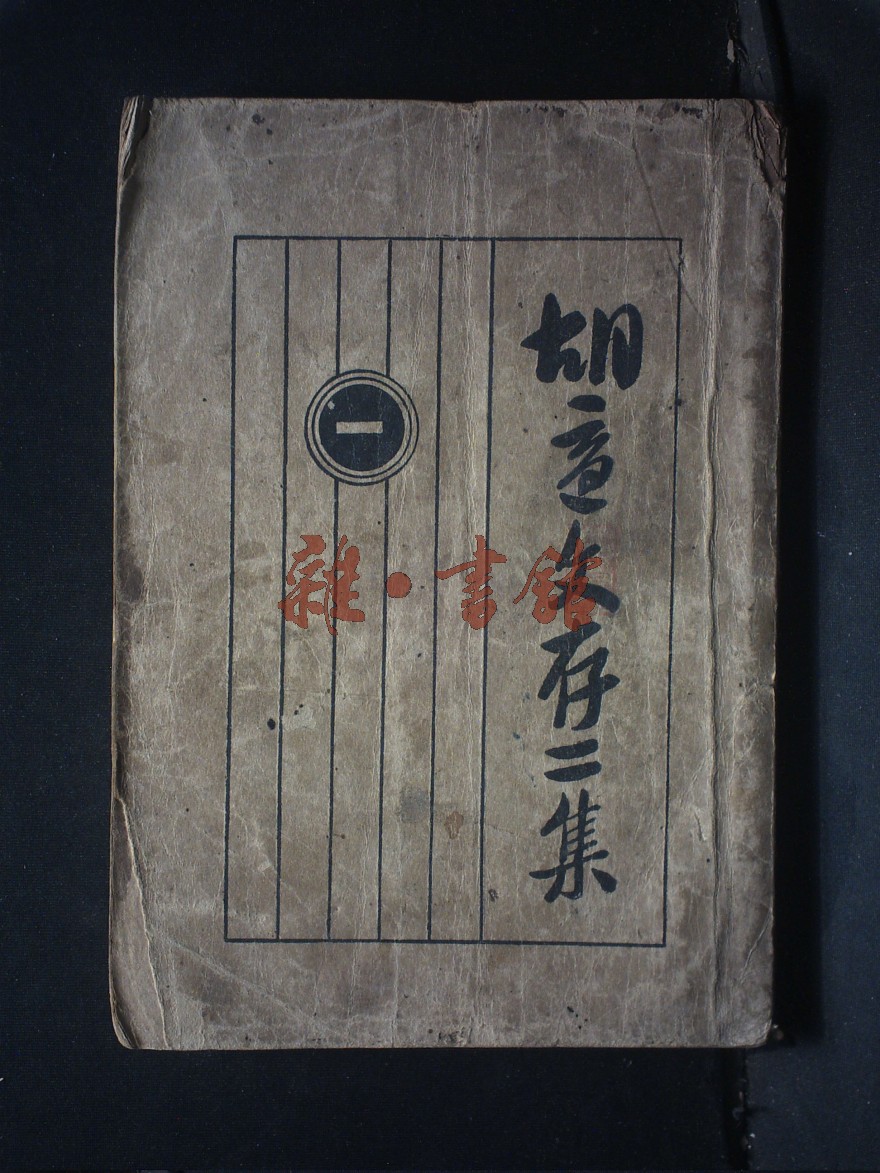 胡適文存二集
一
雜·書館